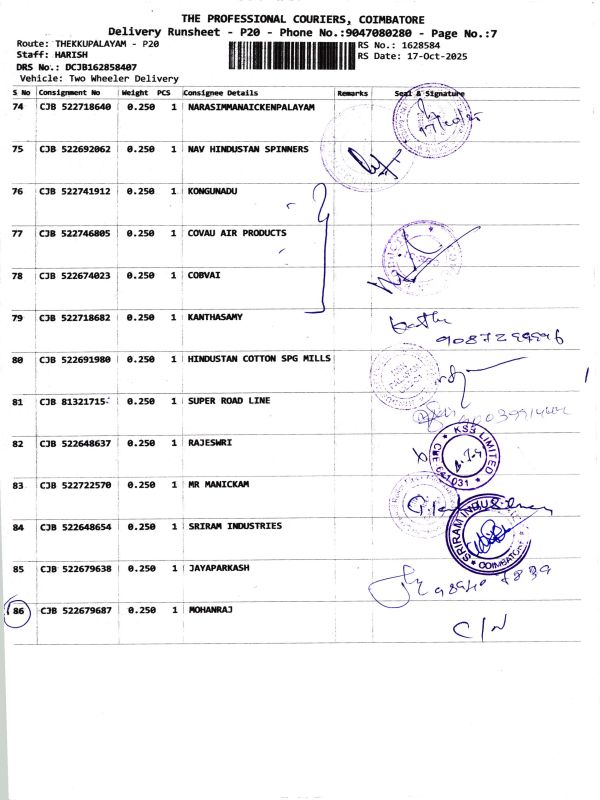 THE PROFESSIONAL COURIERS, COIMBATORE
Delivery Runsheet - P20 - Phone No.:9047080280 - Page No.:7
Route: THEKKUPALAYAM - P20
Staff: HARISH
DRS No.: DCJB162858407
Vehicle: Two Wheeler Delivery
RS No.: 1628584
RS Date: 17-Oct-2025
S No Consignment No Weight PCS Consignee Details Remarks Seal & Signature
74 CJB 522718640 0.250 1 NARASIMMANAICKENPALAYAM
17/10/25
75 CJB 522692062 0.250 1 NAV HINDUSTAN SPINNERS
76 CJB 522741912 0.250 1 KONGUNADU
77 CJB 522746805 0.250 1 COVAU AIR PRODUCTS
78 CJB 522674023 0.250 1 COBVAI
79 CJB 522718682 0.250 1 KANTHASAMY
80 CJB 522691980 0.250 1 HINDUSTAN COTTON SPG MILLS
81 CJB 81321715 0.250 1 SUPER ROAD LINE
82 CJB 522648637 0.250 1 RAJESWRI
KSB LIMITED
CBE 641031
83 CJB 522722570 0.250 1 MR MANICKAM
84 CJB 522648654 0.250 1 SRIRAM INDUSTRIES
SRIRAM INDUSTRIES
COIMBATORE
85 CJB 522679638 0.250 1 JAYAPARKASH
86 CJB 522679687 0.250 1 MOHANRAJ
C/N